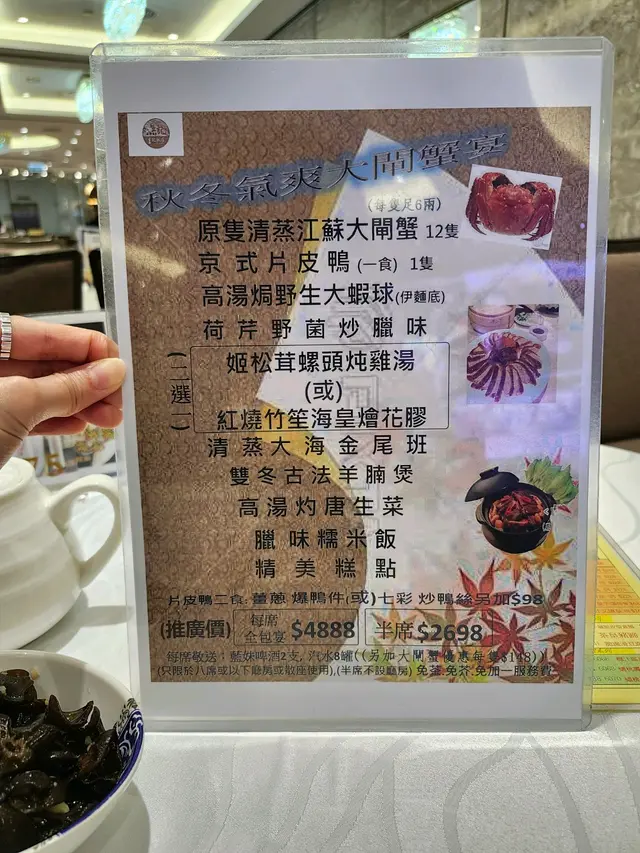 秋冬氣爽大閘蟹宴
(每隻足6兩)
原隻清蒸江蘇大閘蟹 12隻
京式片皮鴨 (一食) 1隻
高湯焗野生大蝦球(伊麵底)
荷芹野菌炒臘味
(二選一)
姬松茸螺頭炖雞湯
(或)
紅燒竹笙海皇燴花膠
清蒸大海金尾班
雙冬古法羊腩煲
高湯灼唐生菜
臘味糯米飯
精美糕點
片皮鴨二食: 薑蔥 爆鴨件(或)七彩 炒鴨絲另加$98
(推廣價) 每席全包宴 $4888 半席 $2698
每席敬送：藍妹啤酒2支, 汽水8罐((另加大閘蟹優惠每隻$118))
(只限於八席或以下廳房或散座使用),(半席不設廳房) 免茶.免芥.免加一服務費